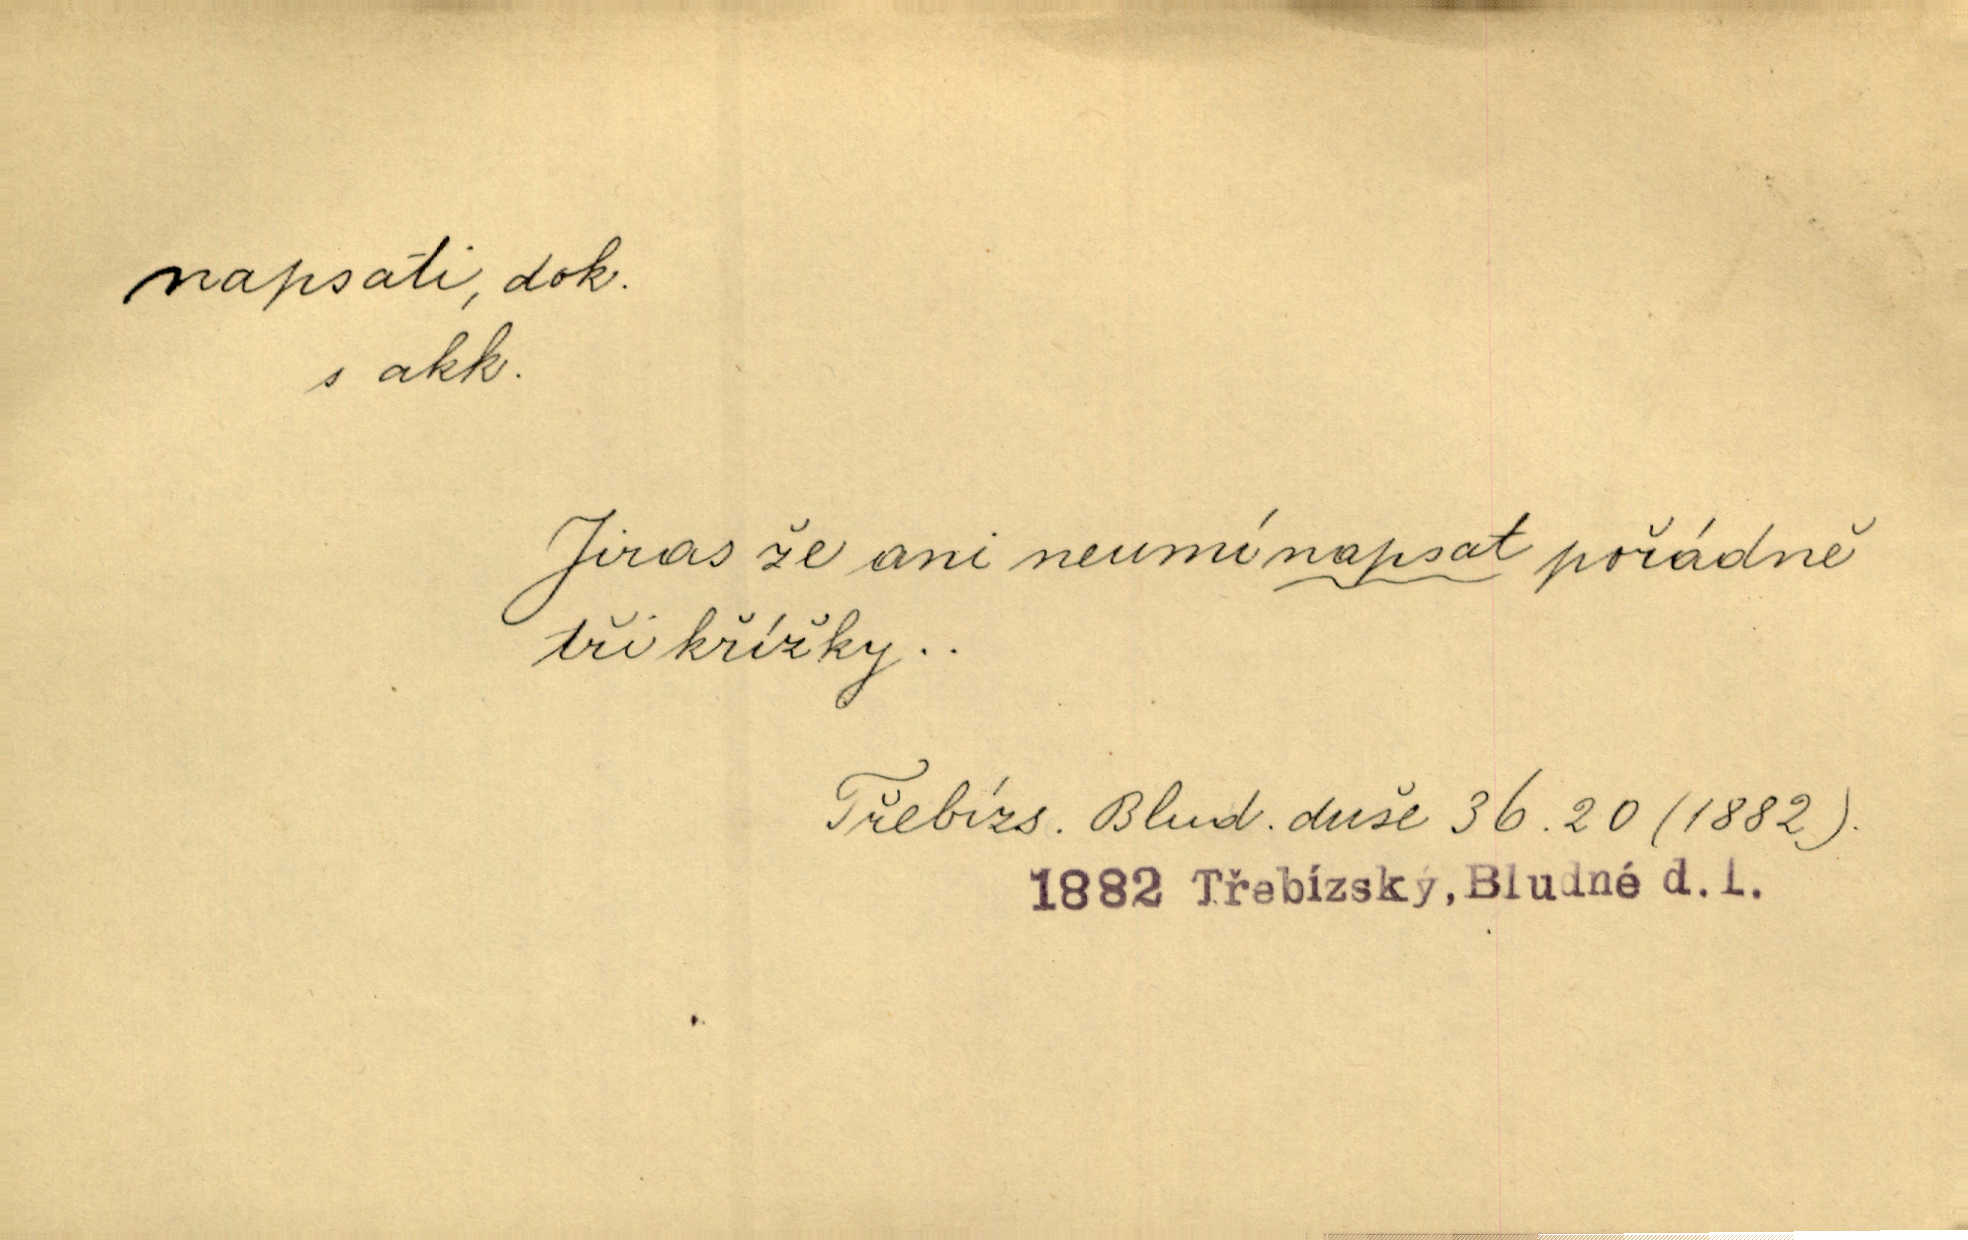 napsati, dok.
s akk.
Jiras že ani neumí napsat pořádně
tři křížky..
Třebízs. Blud. duše 36.20 (1882).
1882 Třebízský, Bludné d. I.